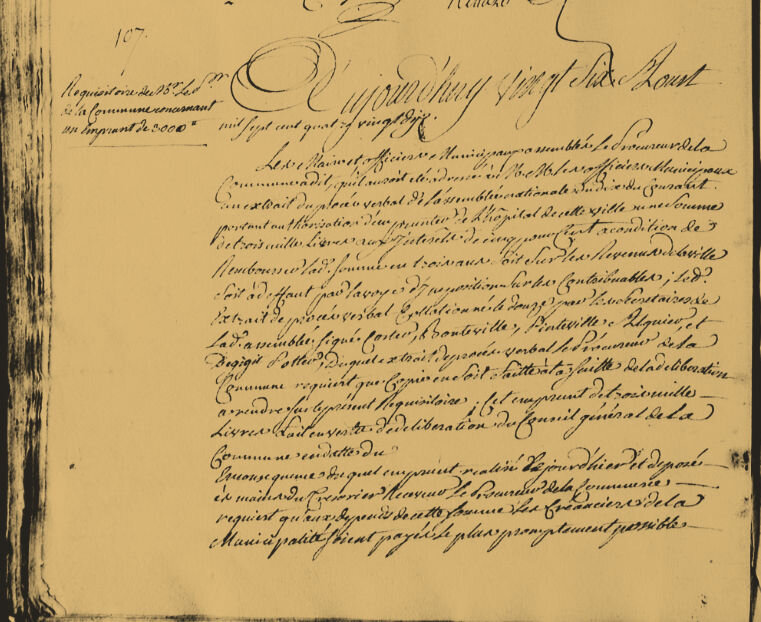 107.
Requisitoire de Mr. Le Pr.
de la Commune concernant
un Emprunt de 3000lt
Aujourd'huy vingt Six Aoust
mil sept cent quatre vingt dix
Les Maire et officiers Municipaux assemblés Le Procureur de la
Commune a dit, qu'il auroit été adressé à MM. Les officiers Municipaux
un extrait du procès verbal de L'assemblée nationale du dix du Courant
portant authorisation d'emprunter de L'hôpital de cette ville une Somme
de trois mille Livres aux Interests de cinq pour Cent a condition de
Rembourser lad. somme en trois ans soit Sur les Revenus de la ville
Soit à deffaut par la voye d'Imposition Sur les Contribuables; Led.
Extrait de procès verbal Collationné le douze par les Secretaires de
Lad. assemblée signé Coster, Pinteville, et
Potter, Duquel extrait de procès verbal Le Procureur de la
Commune requiert que Copie en soit faitte à la suitte de la deliberation
a rendre sur le présent Requisitoire. Cet emprunt de trois mille
Livres fait en vertu de deliberation du Conseil général de La
Commune en datte du
En conséquence duquel emprunt realisé Cejourd'hier et deposé
ès mains du Tresorier Receveur Le Procureur de la Commune
requiert qu'aux depends de cette somme Les Créanciers de la
Municipalité soient payés le plus promptement possible